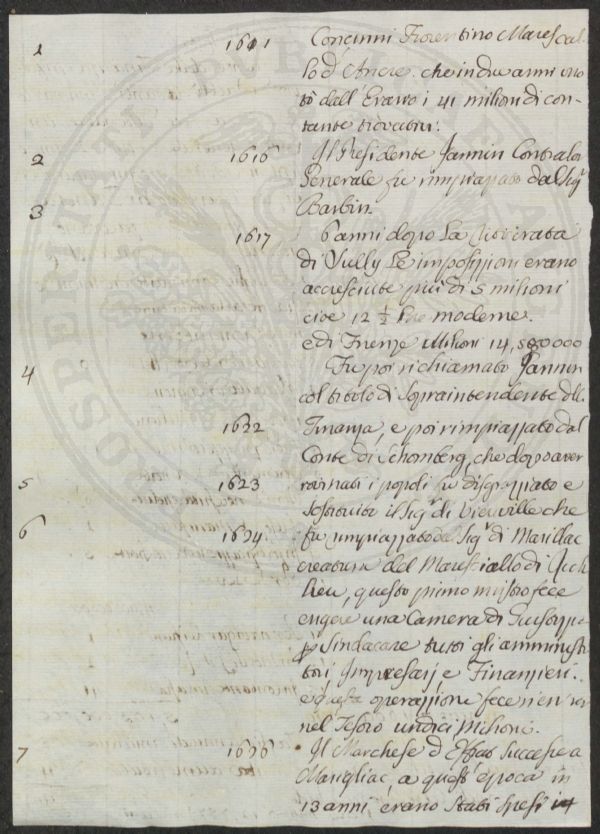 1 1611 Concinni Fiorentino Marescal-
lo d'Ancre. che in due anni vuo
tò dall'Erario i 41 milioni di con-
tante trovativi.
2 1616 Il Presidente Jannin Contralor
Generale fu rimpiazzato dal Sigr
3 Barbin.
1617 6 anni dopo la
di Sully le imposizioni erano
accresciute più di 5 milioni
cioè 12 ½ lire moderne.
e di Firenze Milioni 14,580000
4 Fu poi richiamato Jannin
col titolo di Sopraintendente dlle
1622 Finanza, e poi rimpiazzato dal
Conte di Schomberg, che dopo aver
5 1623 rovinati i popoli fu disgraziato e
sostituito il Sigr di Vieuville che
6 1624 fu rimpiazzato dal Sigr di Marillac
creatura del Maresciallo di Riche
lieu, questo primo mistro fece
erigere una Camera di
p sindacare tutti gli amminist
tori, Impresarj e Finanzieri.
e questa operazione fece rien
nel Tesoro undici Milioni.
7 1626 Il Marchese d'Effiat successe a
Marigliac, a quest'epoca in
13 anni erano stati spesi